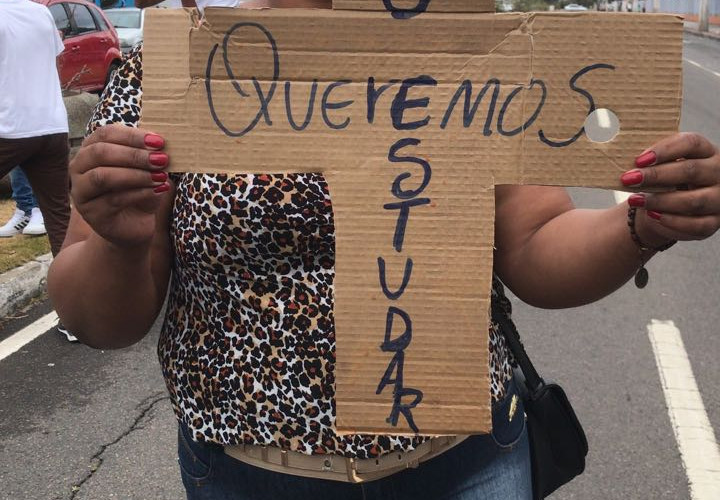 QUErEMOS
ESTUDAR